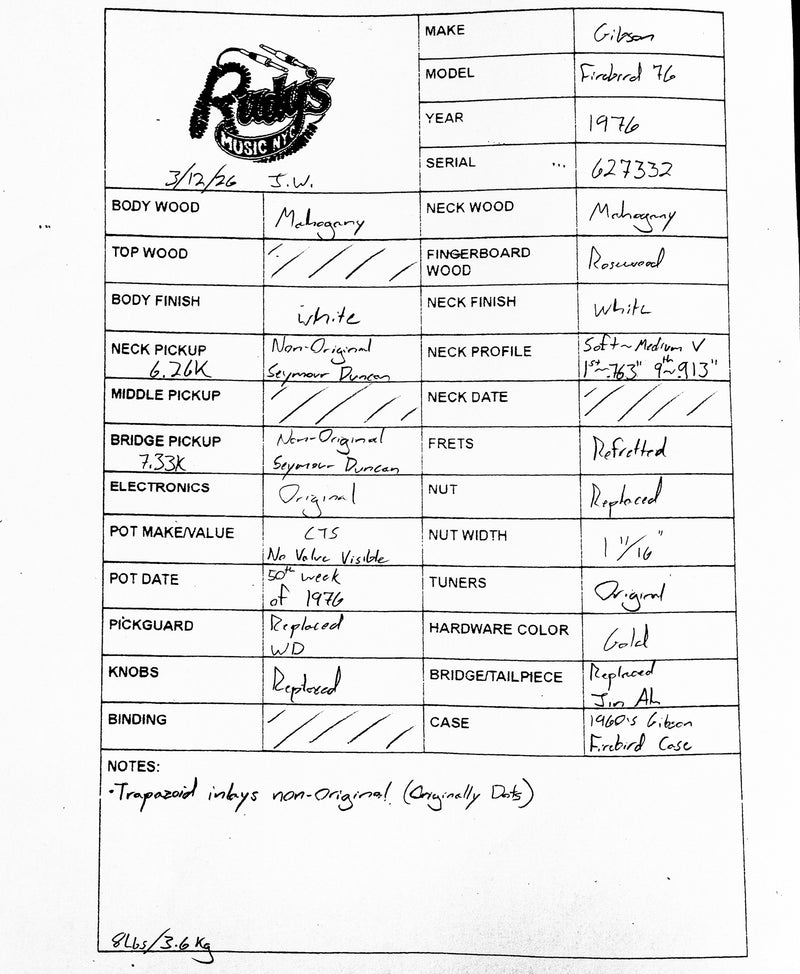 Rudy's
MUSIC NYC
3/12/26 J.W.
MAKE Gibson
MODEL Firebird 76
YEAR 1976
SERIAL 627332
BODY WOOD Mahogany NECK WOOD Mahogany
TOP WOOD FINGERBOARD WOOD Rosewood
BODY FINISH white NECK FINISH White
NECK PICKUP 6.26K Non-Original Seymour Duncan NECK PROFILE Soft~Medium V 1st~.763" 9th~.913"
MIDDLE PICKUP NECK DATE
BRIDGE PICKUP 7.33K Non-Original Seymour Duncan FRETS Refretted
ELECTRONICS Original NUT Replaced
POT MAKE/VALUE CTS No Value Visible NUT WIDTH 1 11/16"
POT DATE 50th week of 1976 TUNERS Original
PICKGUARD Replaced WD HARDWARE COLOR Gold
KNOBS Replaced BRIDGE/TAILPIECE Replaced Jin Ah
BINDING CASE 1960's Gibson Firebird Case
NOTES:
•Trapazoid inlays non-Original (Originally Dots)
8Lbs/3.6Kg